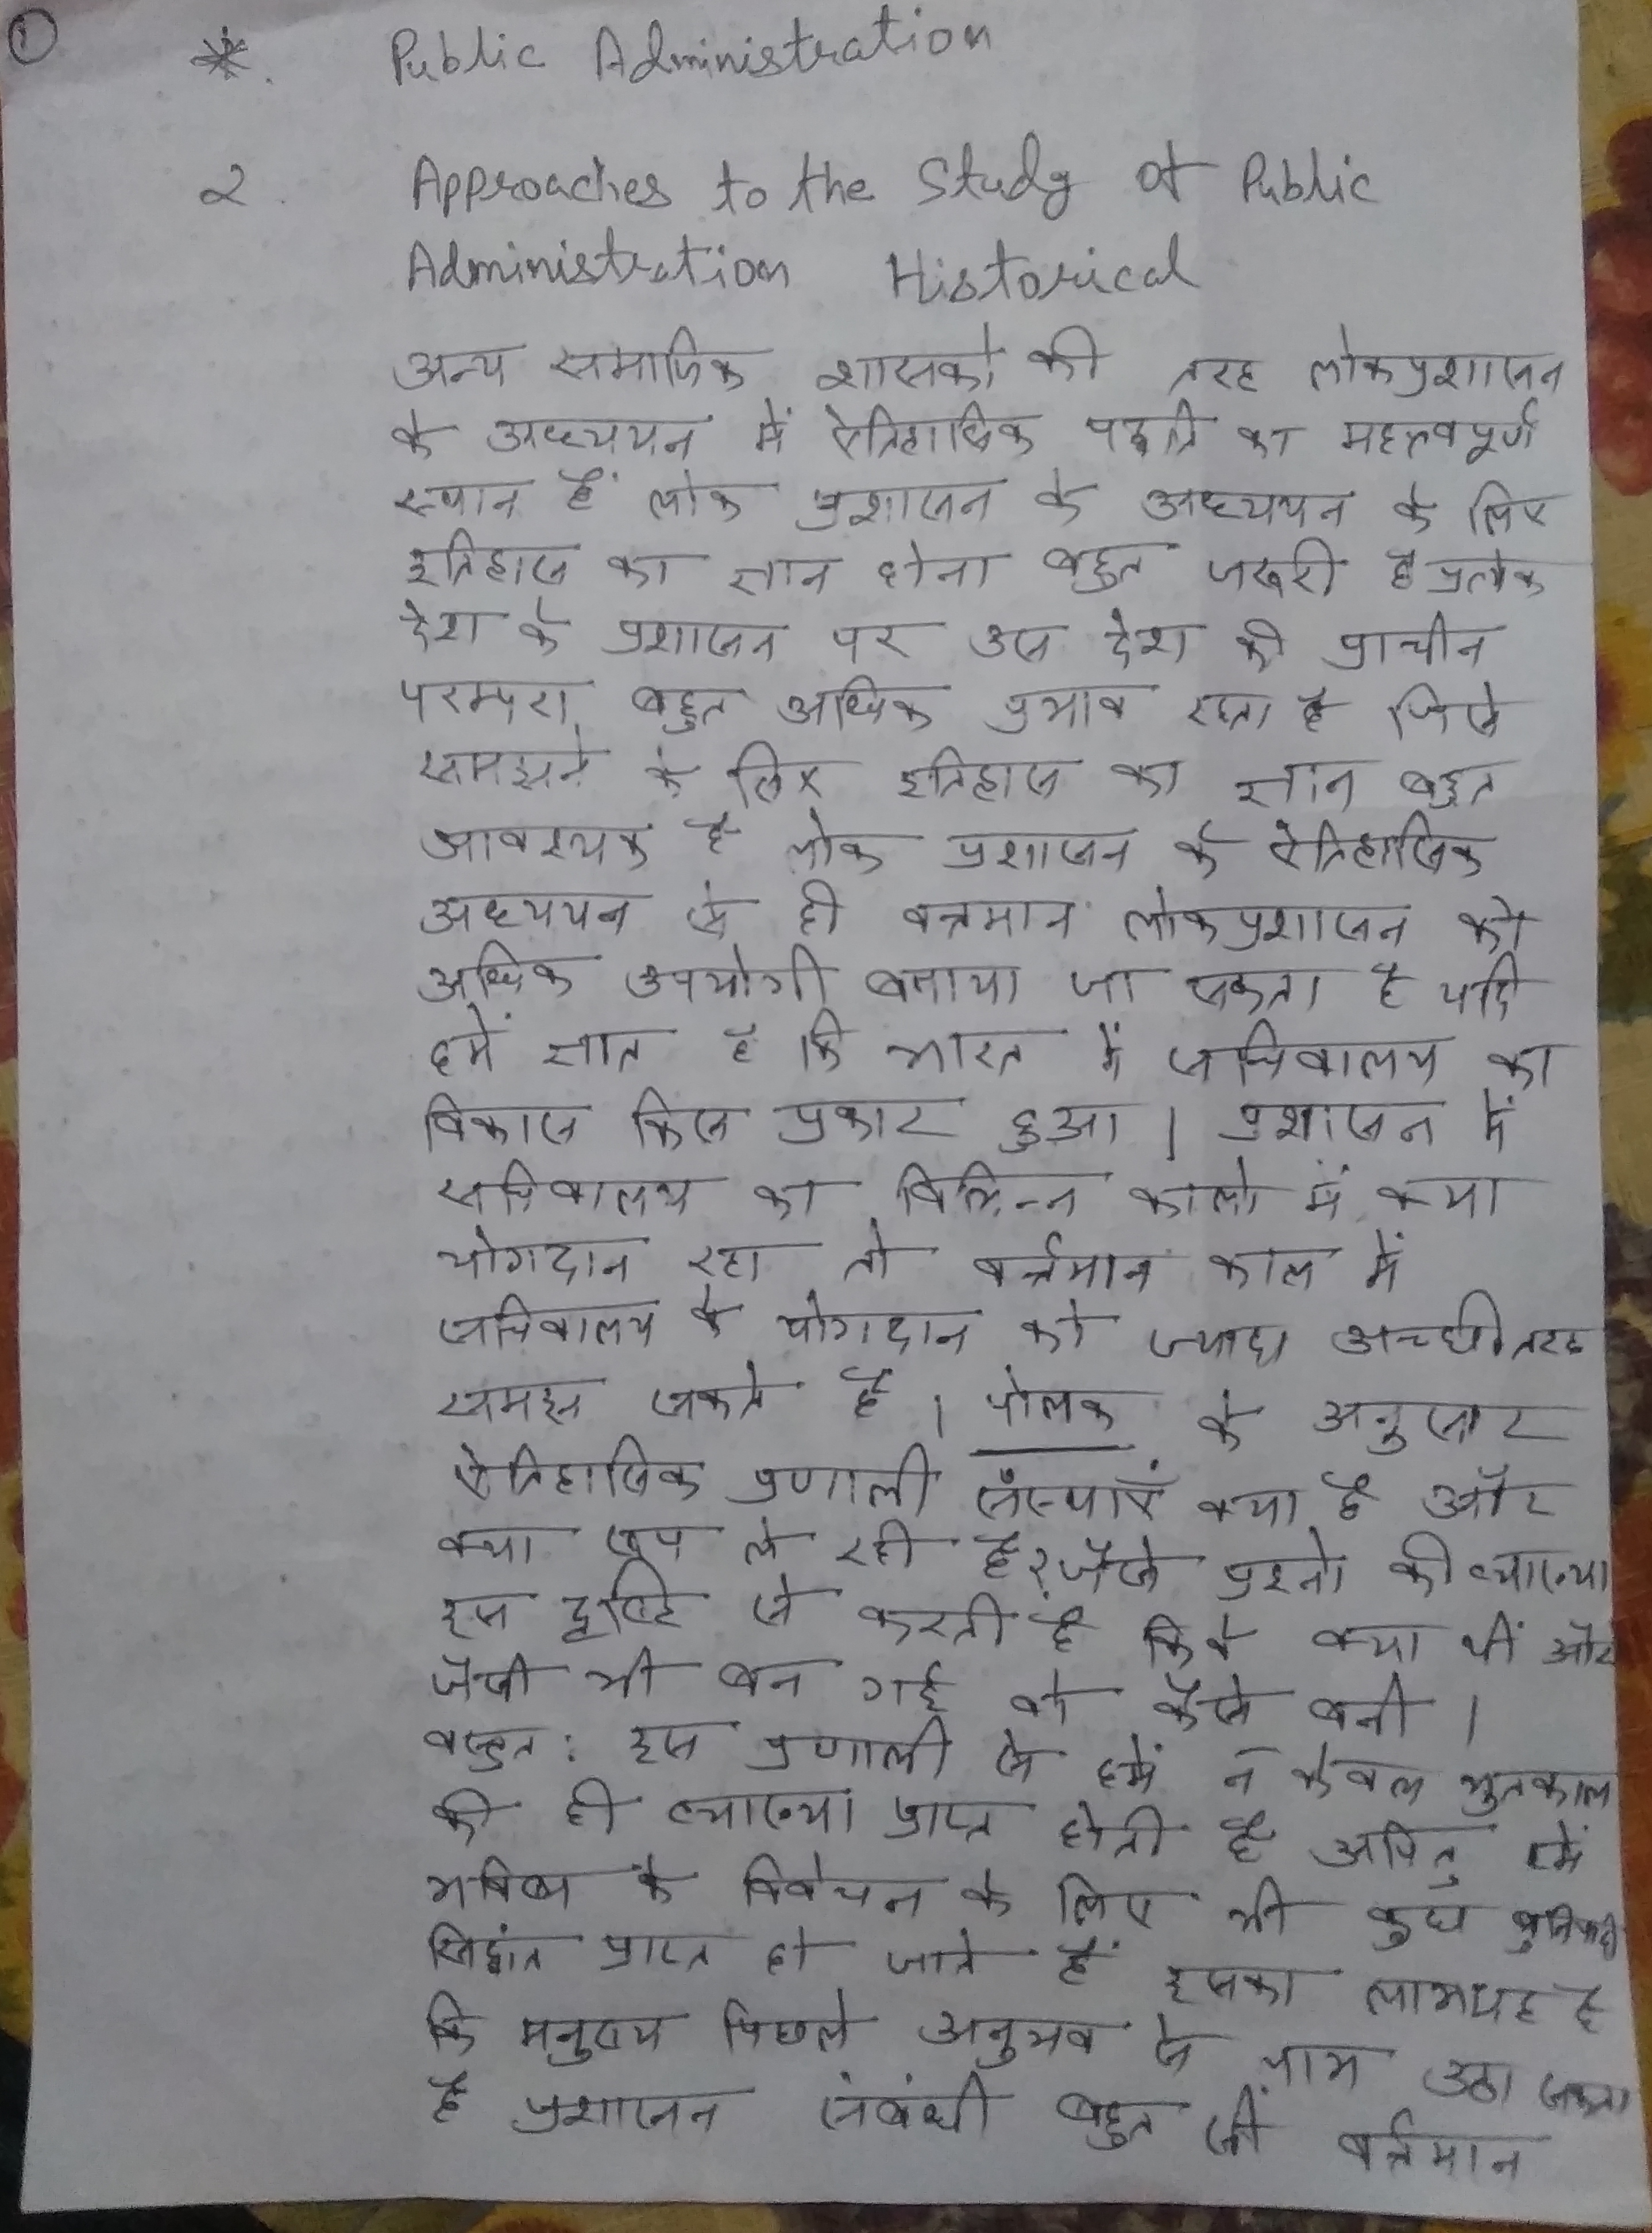 ①
*. Public Administration
2. Approaches to the Study of Public
Administration Historical
अन्य समाजिक शासकों की तरह लोकप्रशासन
के अध्ययन में ऐतिहासिक पद्धति का महत्त्वपूर्ण
स्थान हैं लोक प्रशासन के अध्ययन के लिए
इतिहास का ज्ञान होना बहुत जरूरी है प्रत्येक
देश के प्रशासन पर उस देश की प्राचीन
परम्परा बहुत अधिक प्रभाव रहता है जिसे
समझने के लिए इतिहास का ज्ञान बहुत
आवश्यक है लोक प्रशासन के ऐतिहासिक
अध्ययन से ही वत्रमान लोकप्रशासन को
अधिक उपयोगी बनाया जा सकता है यदि
हमें ज्ञात है कि भारत में सचिवालय का
विकास किस प्रकार हुआ । प्रशासन में
सचिवालय का विभिन्न कालो में क्या
योगदान रहा तो वर्त्तमान काल में
सचिवालय के योगदान को ज्यादा अच्छी तरह
समझ सकते है । पोलक के अनुसार
ऐतिहासिक प्रणाली संस्थाएं क्या है और
क्या रूप ले रही है? जैसे प्रश्नो की व्याख्या
इस दृष्टि से करती है कि वे क्या थीं और
जैसी भी बन गई वो कैसे बनी ।
वस्तुत: इस प्रणाली से हमें न केवल भुतकाल
की ही व्याख्या प्राप्त होती है अपितु हमें
भविष्य के विवेचन के लिए भी कुछ बुनियादी
सिद्धांत प्राप्त हो जाते हैं इसका लाभ यह है
कि मनुष्य पिछले अनुभव से लाभ उठा सकता
है प्रशासन संबंधी बहुत सी वर्त्तमान